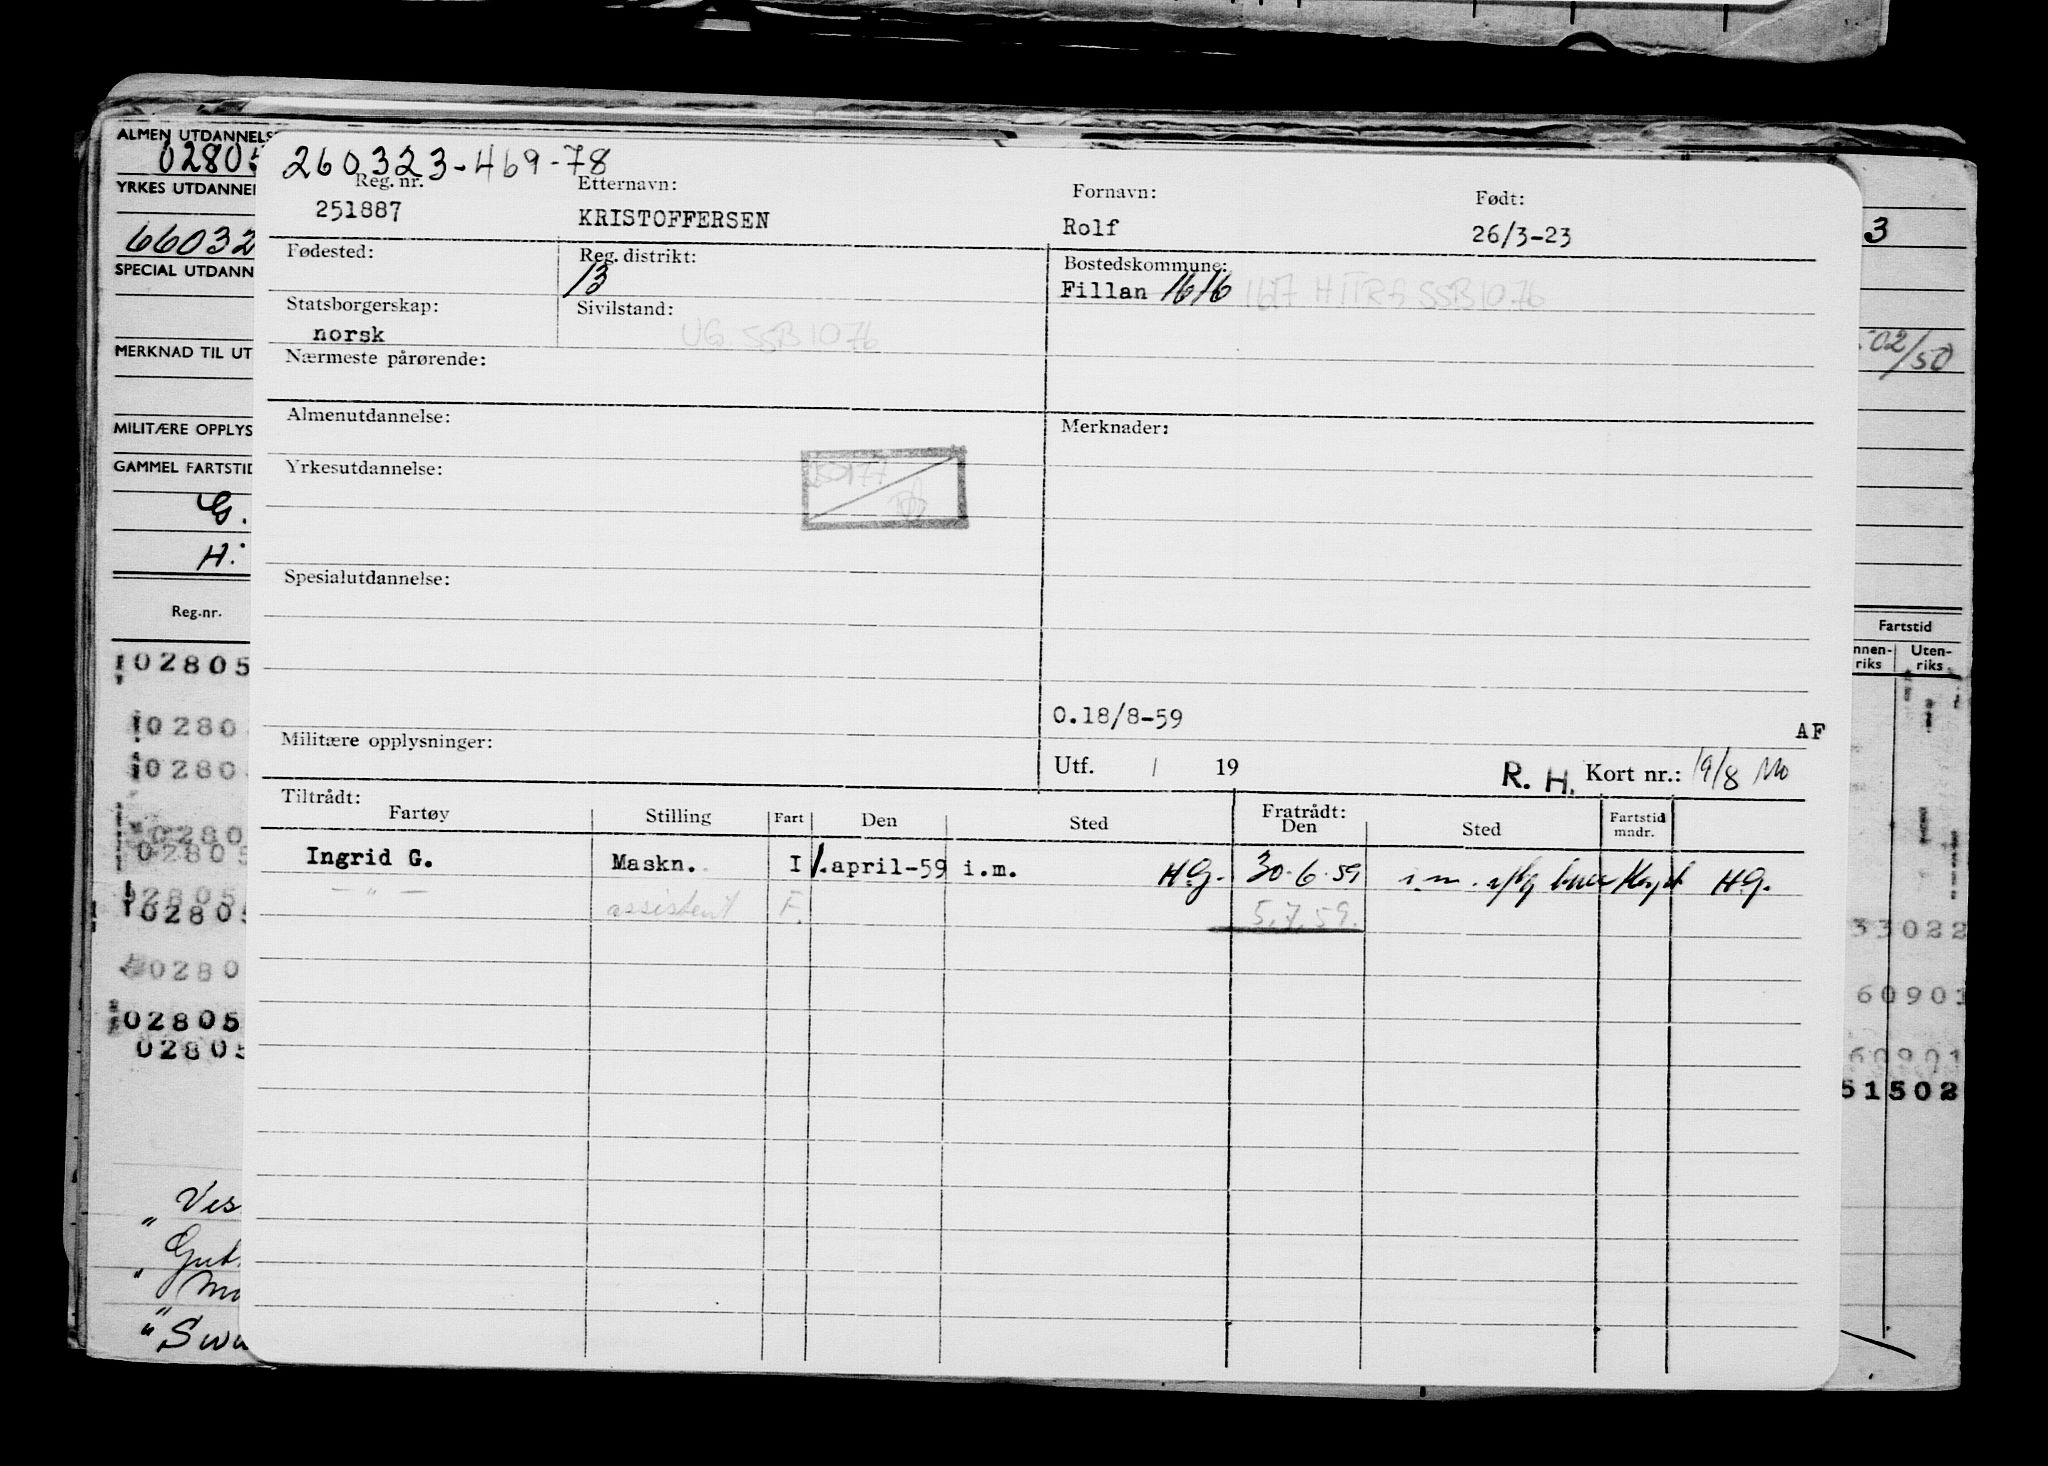 ALMEN UTDANNELS
02805
YRKES UTDANNE
66032
SPECIAL UTDANN
MERKNAD TIL UT
MILITÆRE OPPLYS
GAMMEL FARTSTID
G.
H.
Reg.nr.
02805
0280
0280
0280
02805
02805
02805
0280
02805
02805
" Ves
" Gut
" Mo
" Swa
260323-469-78
Reg. nr. Etternavn: Fornavn: Født:
251887 KRISTOFFERSEN Rolf 26/3-23
Fødested: Reg. distrikt: Bostedskommune:
13 Fillan 1616 1617 HITRA SSB 10.76
Statsborgerskap: Sivilstand:
norsk UG. SSB 10 76
Nærmeste pårørende:
Almenutdannelse: Merknader:
Yrkesutdannelse:
Spesialutdannelse:
0.18/8-59 AF
Militære opplysninger: Utf. / 19 R. H. Kort nr.: 19/8 Mo
Tiltrådt: Fratrådt:
Fartøy Stilling Fart Den Sted Den Sted Fartstid mndr.
Ingrid G. Maskn. I 1.april-59 i.m. H.G. 30.6.59 i.m. H.G.
— " — assistent F. 5.7.59.
3
02/50
Fartstid
nnen-riks Uten-riks
33022
60901
60901
51502